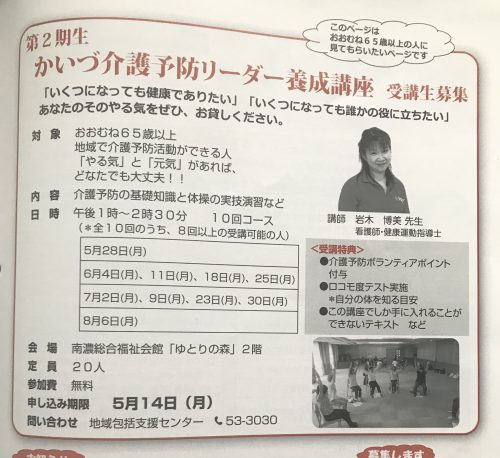 このページは
おおむね65歳以上の人に
見てもらいたいページです
第2期生
かいづ介護予防リーダー養成講座 受講生募集
「いくつになっても健康でありたい」「いくつになっても誰かの役に立ちたい」
あなたのそのやる気をぜひ、お貸しください。
対 象 おおむね65歳以上
地域で介護予防活動ができる人
「やる気」と「元気」があれば、
どなたでも大丈夫!!
内 容 介護予防の基礎知識と体操の実技演習など
日 時 午後1時~2時30分 10回コース
(*全10回のうち、8回以上の受講可能の人)
5月28日(月)
6月4日(月)、11日(月)、18日(月)、25日(月)
7月2日(月)、9日(月)、23日(月)、30日(月)
8月6日(月)
講師 岩木 博美 先生
看護師・健康運動指導士
<受講特典>
●介護予防ボランティアポイント
付与
●ロコモ度テスト実施
*自分の体を知る目安
●この講座でしか手に入れることが
できないテキスト など
会 場 南濃総合福祉会館「ゆとりの森」2階
定 員 20人
参加費 無料
申し込み期限 5月14日(月)
問い合わせ 地域包括支援センター 53-3030
募集します